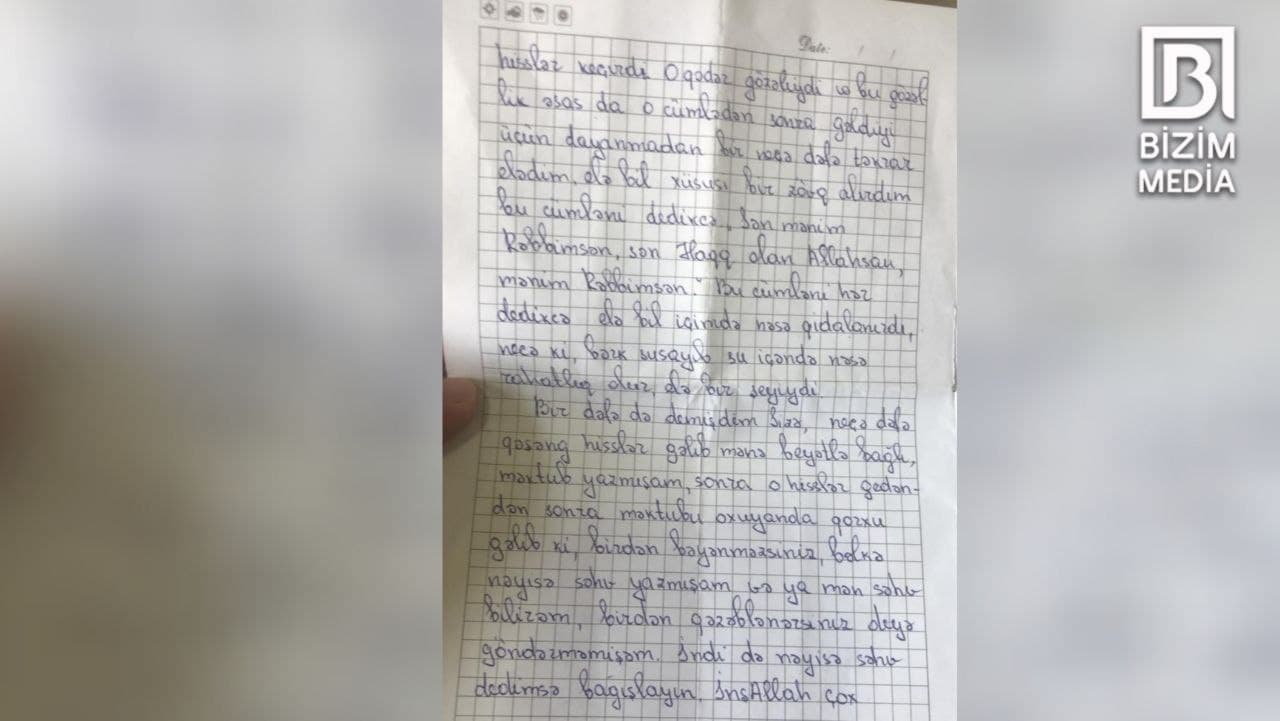 Date: / /
hisslər keçirdi. O qədər gözəliydi və bu gözəl-
lik əsas da o cümlədən sonra gəldiyi
üçün dayanmadan bir neçə dəfə təkrar
elədim, elə bil xüsusi bir zövq alırdım
bu cümləni dedikcə, Sən mənim
Rəbbimsən, sən Haqq olan Allahsan,
mənim Rəbbimsən." Bu cümləni hər
dedikcə elə bil içimdə nəsə qidalanırdı,
necə ki, bərk susayıb su içəndə nəsə
rahatlıq olur, elə bir şeyiydi.
Bir dəfə də demişdim Sizə, neçə dəfə
qəşəng hisslər gəlib mənə beyətlə bağlı,
məktub yazmışam, sonra o hisslər gedən-
dən sonra məktubu oxuyanda qorxu
gəlib ki, birdən bəyənmərsiniz, bəlkə
nəyisə səhv yazmışam və ya mən səhv
bilirəm, birdən qəzəblənərsiniz deyə
göndərməmişəm. İndi də nəyisə səhv
dedimsə bağışlayın. İnşAllah çox
BİZİM
MEDİA